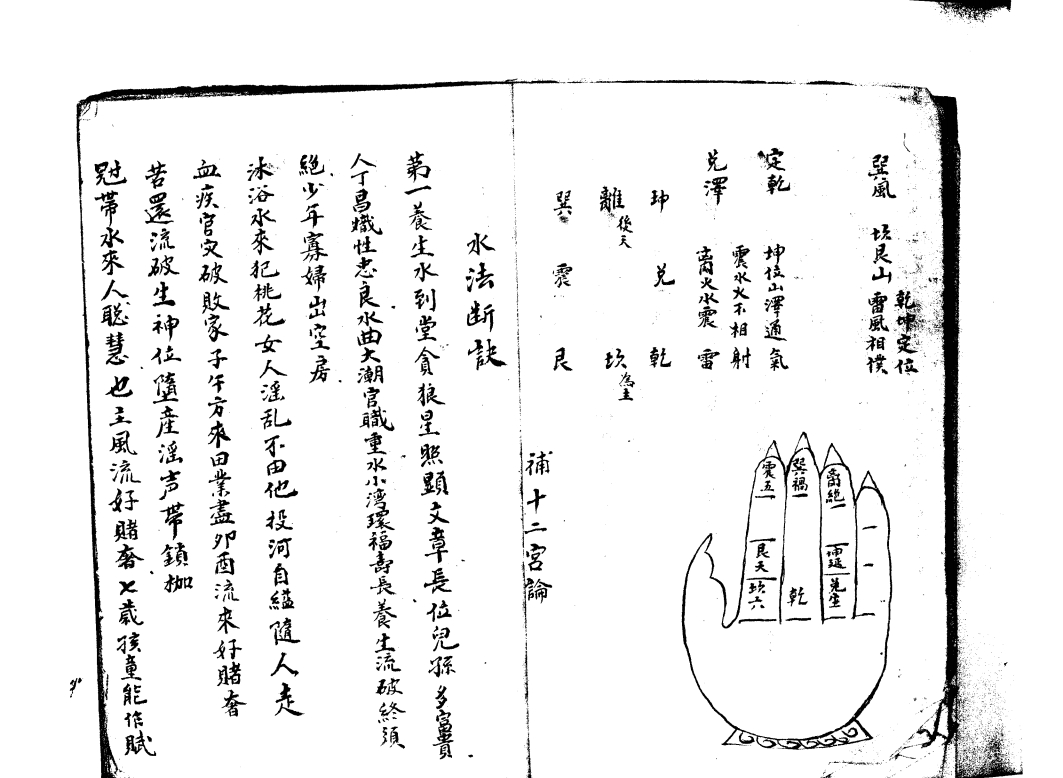 巽風 坎艮山 雷風相撲
乾坤定位
定乾 坤位山澤通氣
震水火不相射
兌澤 离火水震雷
坤 兌 乾
離後天 坎為主
巽 震 艮
補十二宮論
震五
艮天
坎六
巽禍
乾
离絕
坤延
兌生
水法断訣
第一養生水到堂貪狼星照顯文章長位兒孫多富貴
人丁昌熾性忠良水曲大潮官職重水小湾環福壽長養生流破終須
絕少年寡婦出空房
沐浴水來犯桃花女人淫乱不由他投河自縊隨人走
血疾官灾破敗家子午方來田業盡卯酉流來好賭奢
若還流破生神位墮産淫声帶鎖枷
冠帶水來人聡慧也主風流好賭奢七歲孩童能作賦